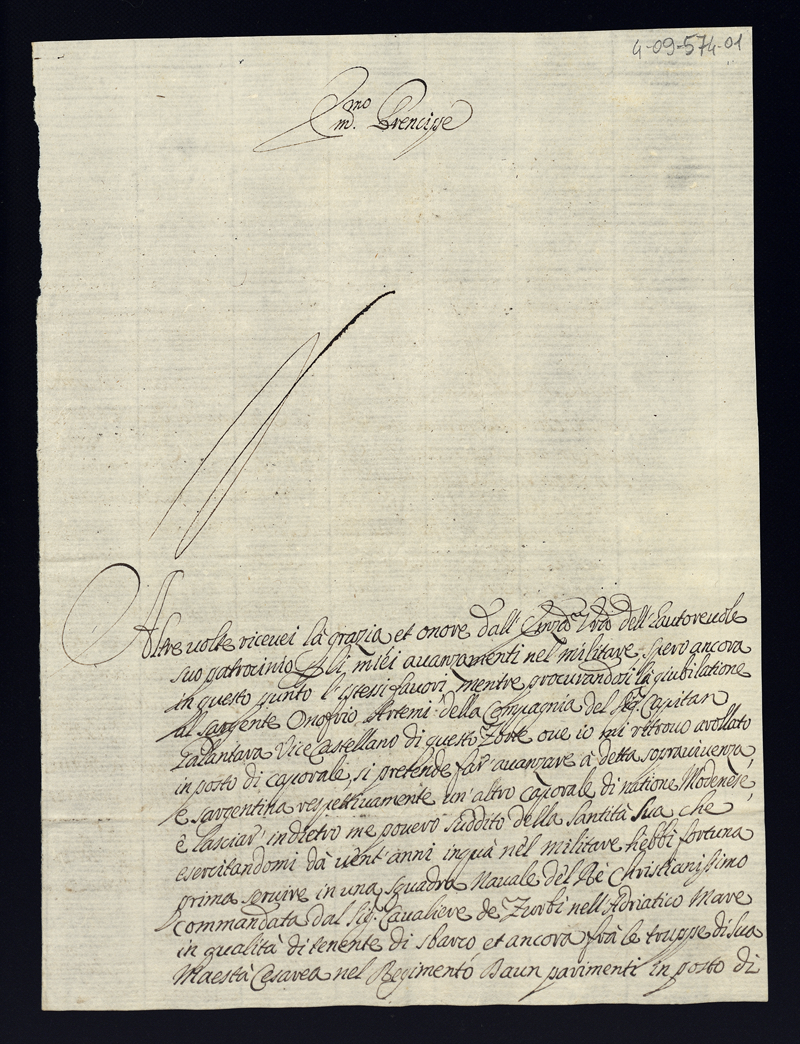 4-09-574-01
Em.mo Prencipe
Altre uolte riceuei la grazia et onore dall' Em.za V.ra dell' autoreuole
suo patrocinio p li miei auanzamenti nel militare, spero ancora
in questo punto l' istessi fauori, mentre procurandosi la giubilatione
al sargente Onofrio Artemi della Compagnia del Sig. Capitan
Vice Castellano di questo Forte oue io mi ritrouo arollato
in posto di caporale, si pretende far auanzare à detta soprauiuenza
e sargentina respettiuamente un' altro caporale di natione Modenese,
e lasciar' indietro me pouero suddito della Santità Sua, che
esercitandomi dà uent' anni inquà nel militare hebbi fortuna
prima seruire in una squadra Nauale del Rè Christianissimo
commandata dal Sig. Caualiere de Furbi nell' Adriatico Mare
in qualità di tenente di sbarco, et ancora frà le truppe di Sua
Maestà Cesarea nel Regimento Baun pavimenti in posto di